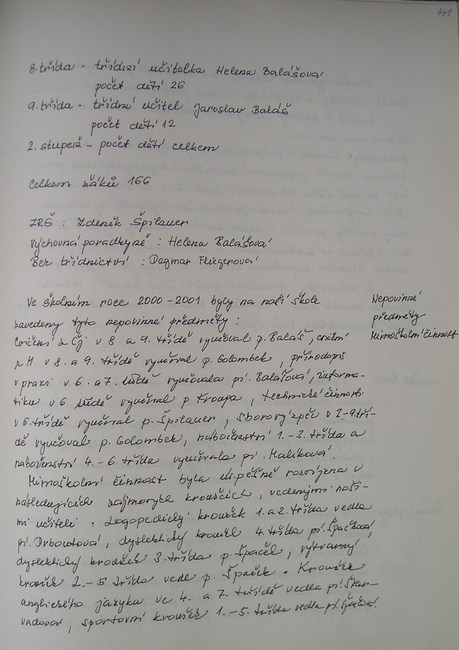 441
8. třída - třídní učitelka Helena Balášová
počet dětí 26
9. třída - třídní učitel Jaroslav Baláš
počet dětí 12
2. stupeň - počet dětí celkem
Celkem žáků 166
ZŘŠ : Zdeněk Špilauer
Výchovná poradkyně : Helena Balášová
Bez třídnictví : Dagmar Fliegerová
Ve školním roce 2000-2001 byly na naší škole
Nepovinné
zavedeny tyto nepovinné předměty :
předměty
cvičení z Čj v 8. a 9. třídě vyučoval p. Baláš, cvičení
Mimoškolní činnost
z M v 8. a 9. třídě vyučoval p. Golombek, přírodopis
v praxi v 6. a 7. třídě vyučovala pí. Balášová, informa-
tiku v 6 třídě vyučoval p. Kroupa, technické činnosti
v 6. třídě vyučoval p. Špilauer, sborový zpěv v 2.-9. tří-
dě vyučoval p. Golombek, náboženství 1.-3. třída a
náboženství 4.-6. třída vyučovala pí. Malíková.
Mimoškolní činnost byla úspěšně rozvíjena v
následujících zájmových kroužcích, vedenými naši-
mi učiteli. Logopedický kroužek 1. a 2. třída vedla
pí. dyslektický kroužek 4. třída pí. Špačková,
dyslektický kroužek 3. třída p. Špaček, výtvarný
kroužek 2.-5. třída vedl p. Špaček. Kroužek
anglického jazyka ve 4. a 7. třídě vedla pí.
sportovní kroužek 1.-5. třída vedla pí.